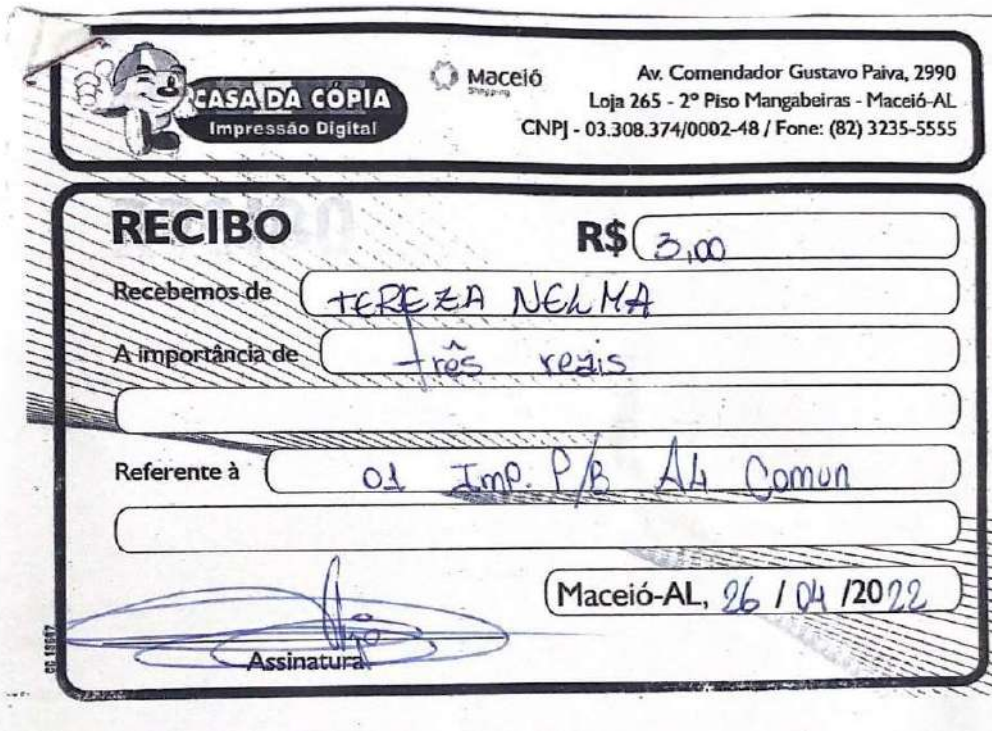 CASA DA CÓPIA
Impressão Digital
Maceió
Shopping
Av. Comendador Gustavo Paiva, 2990
Loja 265 - 2º Piso Mangabeiras - Maceió-AL
CNPJ - 03.308.374/0002-48 / Fone: (82) 3235-5555
RECIBO R$ 3,00
Recebemos de TEREZA NELMA
A importância de três reais
Referente à 01 Imp. P/B A4 Comun
Maceió-AL, 26 / 04 /2022
Assinatura